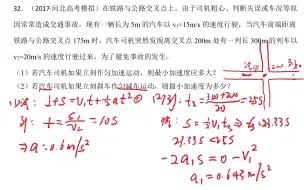 32. （2017·河北高考模拟）在铁路与公路交叉点上，由于司机粗心、判断失误或车况等原
因常常造成交通事故。现有一辆长为5m的汽车以v₁=15m/s的速度行驶，当汽车前端距离
铁路与公路交叉点175m时，汽车司机突然发现离交叉点200m处有一列长300m的列车以
v₂=20m/s的速度行驶过来，为了避免事故的发生。
（1）若汽车司机如果立刻作匀加速运动，则最小加速度应多大？
（2）若汽车司机如果立刻刹车作匀减速运动，则最小加速度为多少？
l+S=V₁t+½at²①
t=S₁/V₂=10S
⇒a=0.6m/s²
t₂=(300+200)/20=25S
S=½V₁t₃⇒t₃=23.33S
23.33S<25S
-2a₁S=0-V₁²
a₁=0.643m/s²